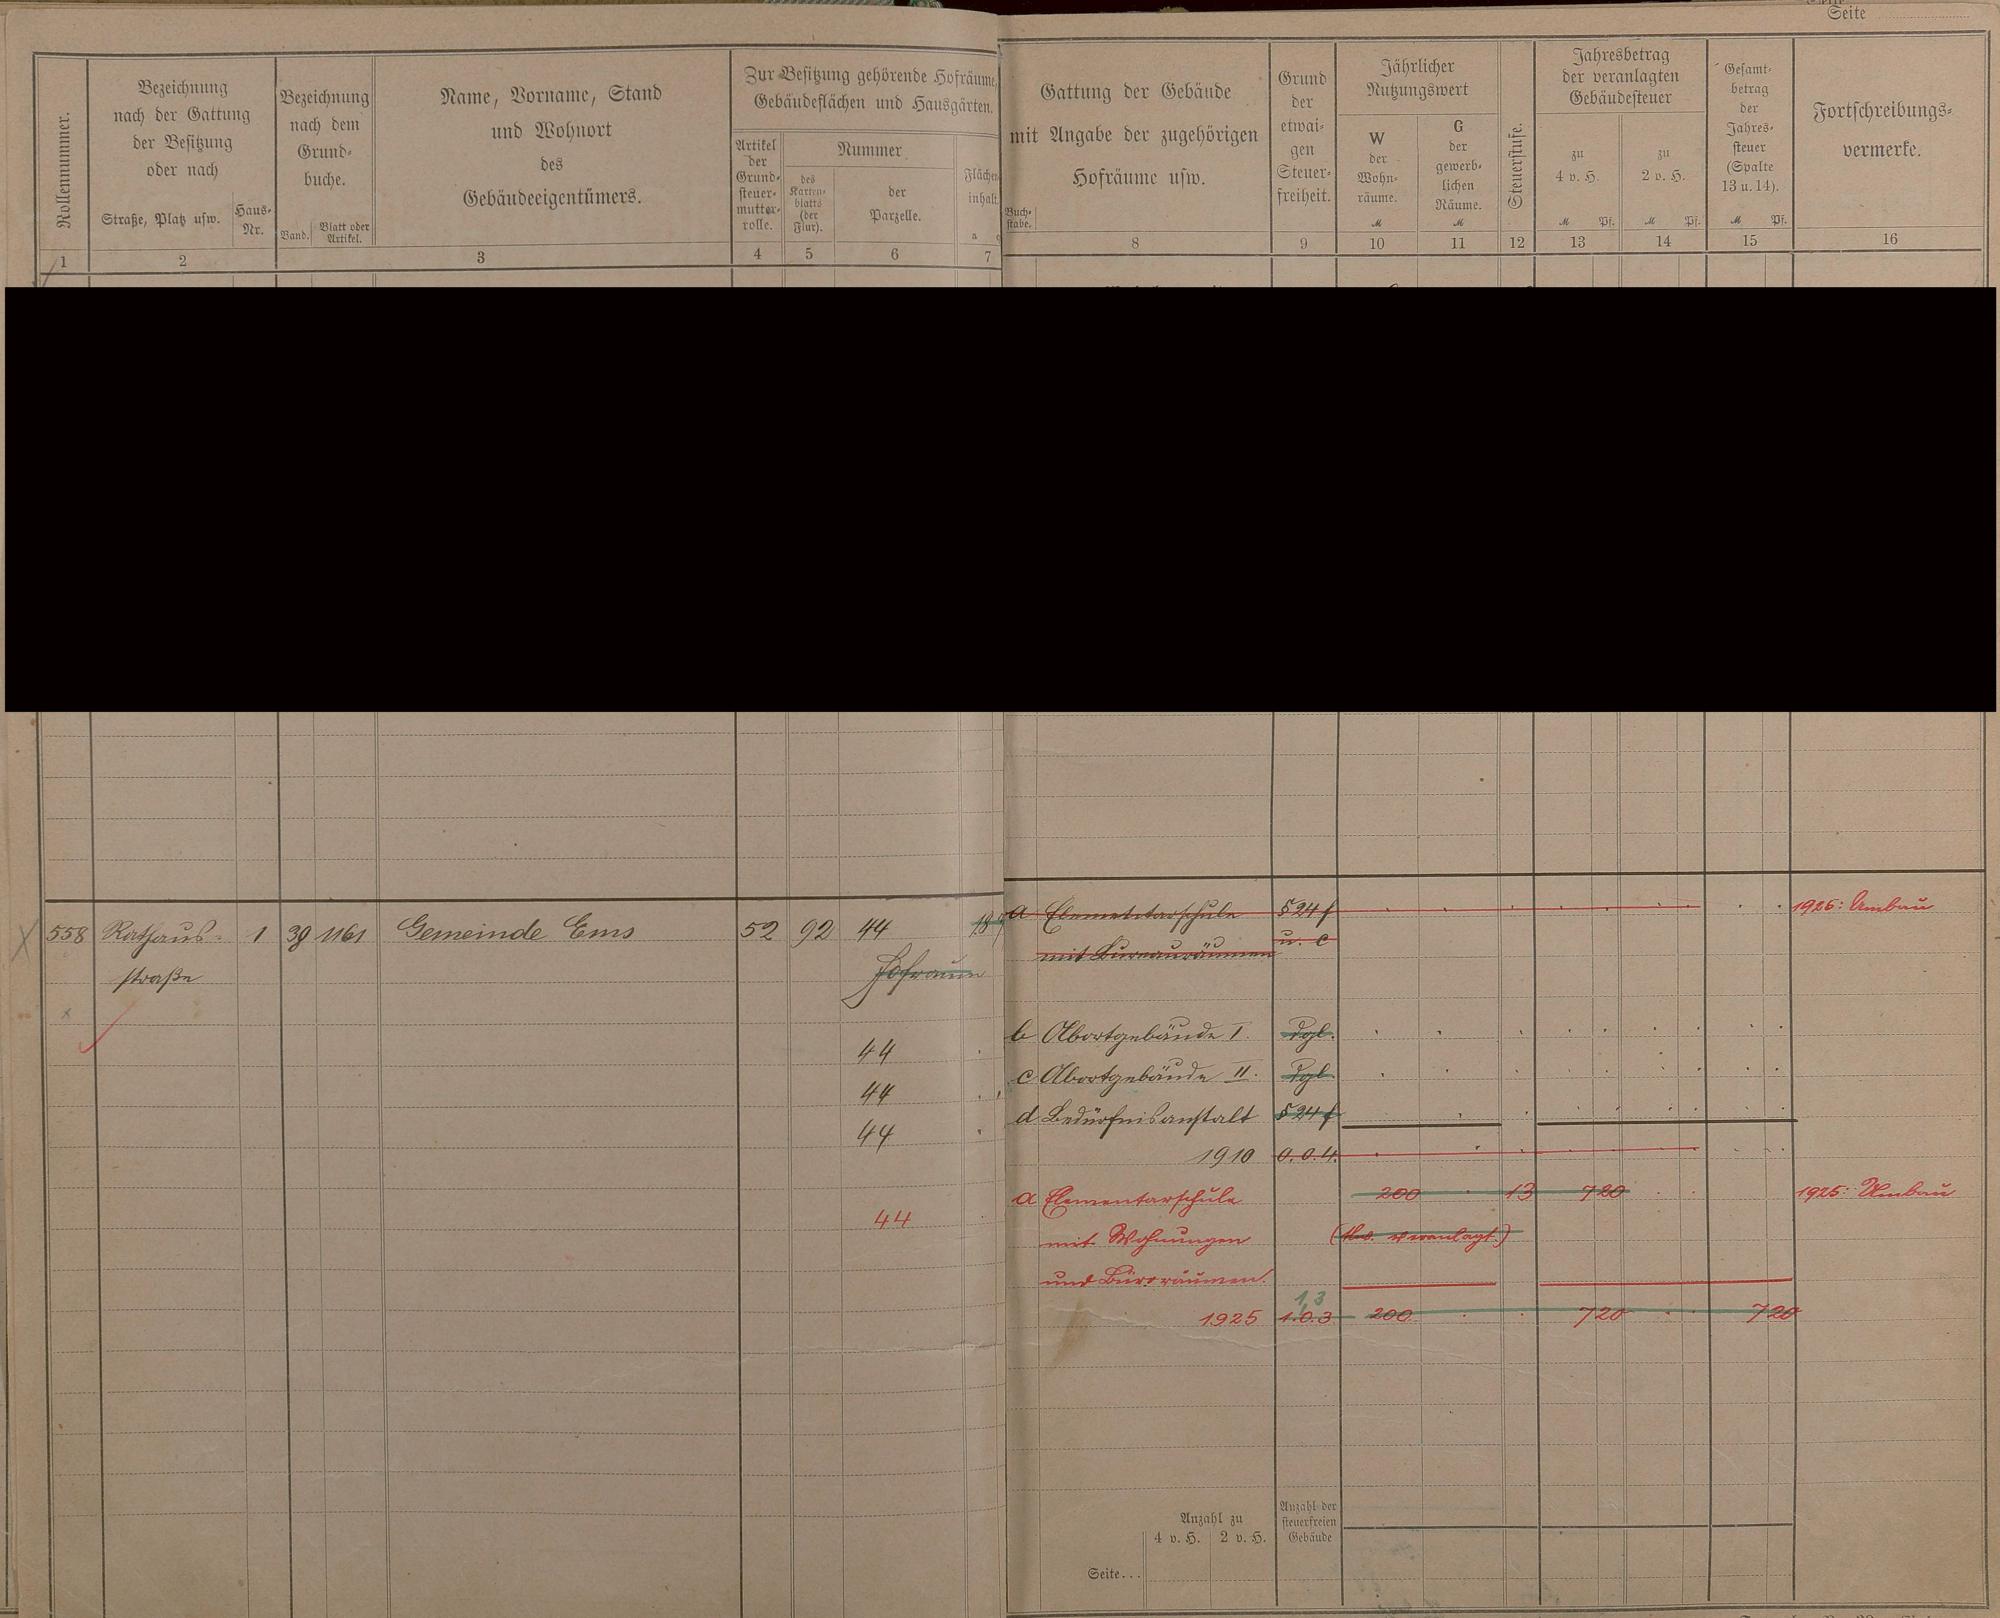 Seite
Rollennummer.
Bezeichnung
nach der Gattung
der Besitzung
oder nach
Straße, Platz usw.
Haus-
Nr.
Bezeichnung
nach dem
Grund-
buche.
Band.
Blatt oder
Artikel.
Name, Vorname, Stand
und Wohnort
des
Gebäudeeigentümers.
Zur Besitzung gehörende Hofräume,
Gebäudeflächen und Hausgärten.
Artikel
der
Grund-
steuer-
mutter-
rolle.
Nummer
des
Karten-
blatts
(der
Flur).
der
Parzelle.
Flächen-
inhalt.
a
Gattung der Gebäude
mit Angabe der zugehörigen
Hofräume usw.
Buch-
stabe.
Grund
der
etwai-
gen
Steuer-
freiheit.
Jährlicher
Nutzungswert
W
der
Wohn-
räume.
M
G
der
gewerb-
lichen
Räume.
M
Steuerstufe.
Jahresbetrag
der veranlagten
Gebäudesteuer
zu
4 v. H.
M Pf.
zu
2 v. H.
M Pf.
Gesamt-
betrag
der
Jahres-
steuer
(Spalte
13 u. 14).
M Pf.
Fortschreibungs-
vermerke.
1 2 3 4 5 6 7 8 9 10 11 12 13 14 15 16
558 Rathaus- 1 39 1161 Gemeinde Ems 52 92 44
straße
Hofraum
44
44
44
44
a Elementarschule § 24 f 1926: Umbau
mit Bureauräumen u. c
b Abortgebäude I. dgl.
c Abortgebäude II. dgl.
d Bedürfnisanstalt § 24 f
1910 0.0.4.
a Elementarschule 200 13 720 1925: Umbau
mit Wohnungen veranlagt.)
und Büroräumen.
1,3
1925 1.0.3 200 720 720
Anzahl zu
4 v. H. 2 v. H.
Anzahl der
steuerfreien
Gebäude
Seite...